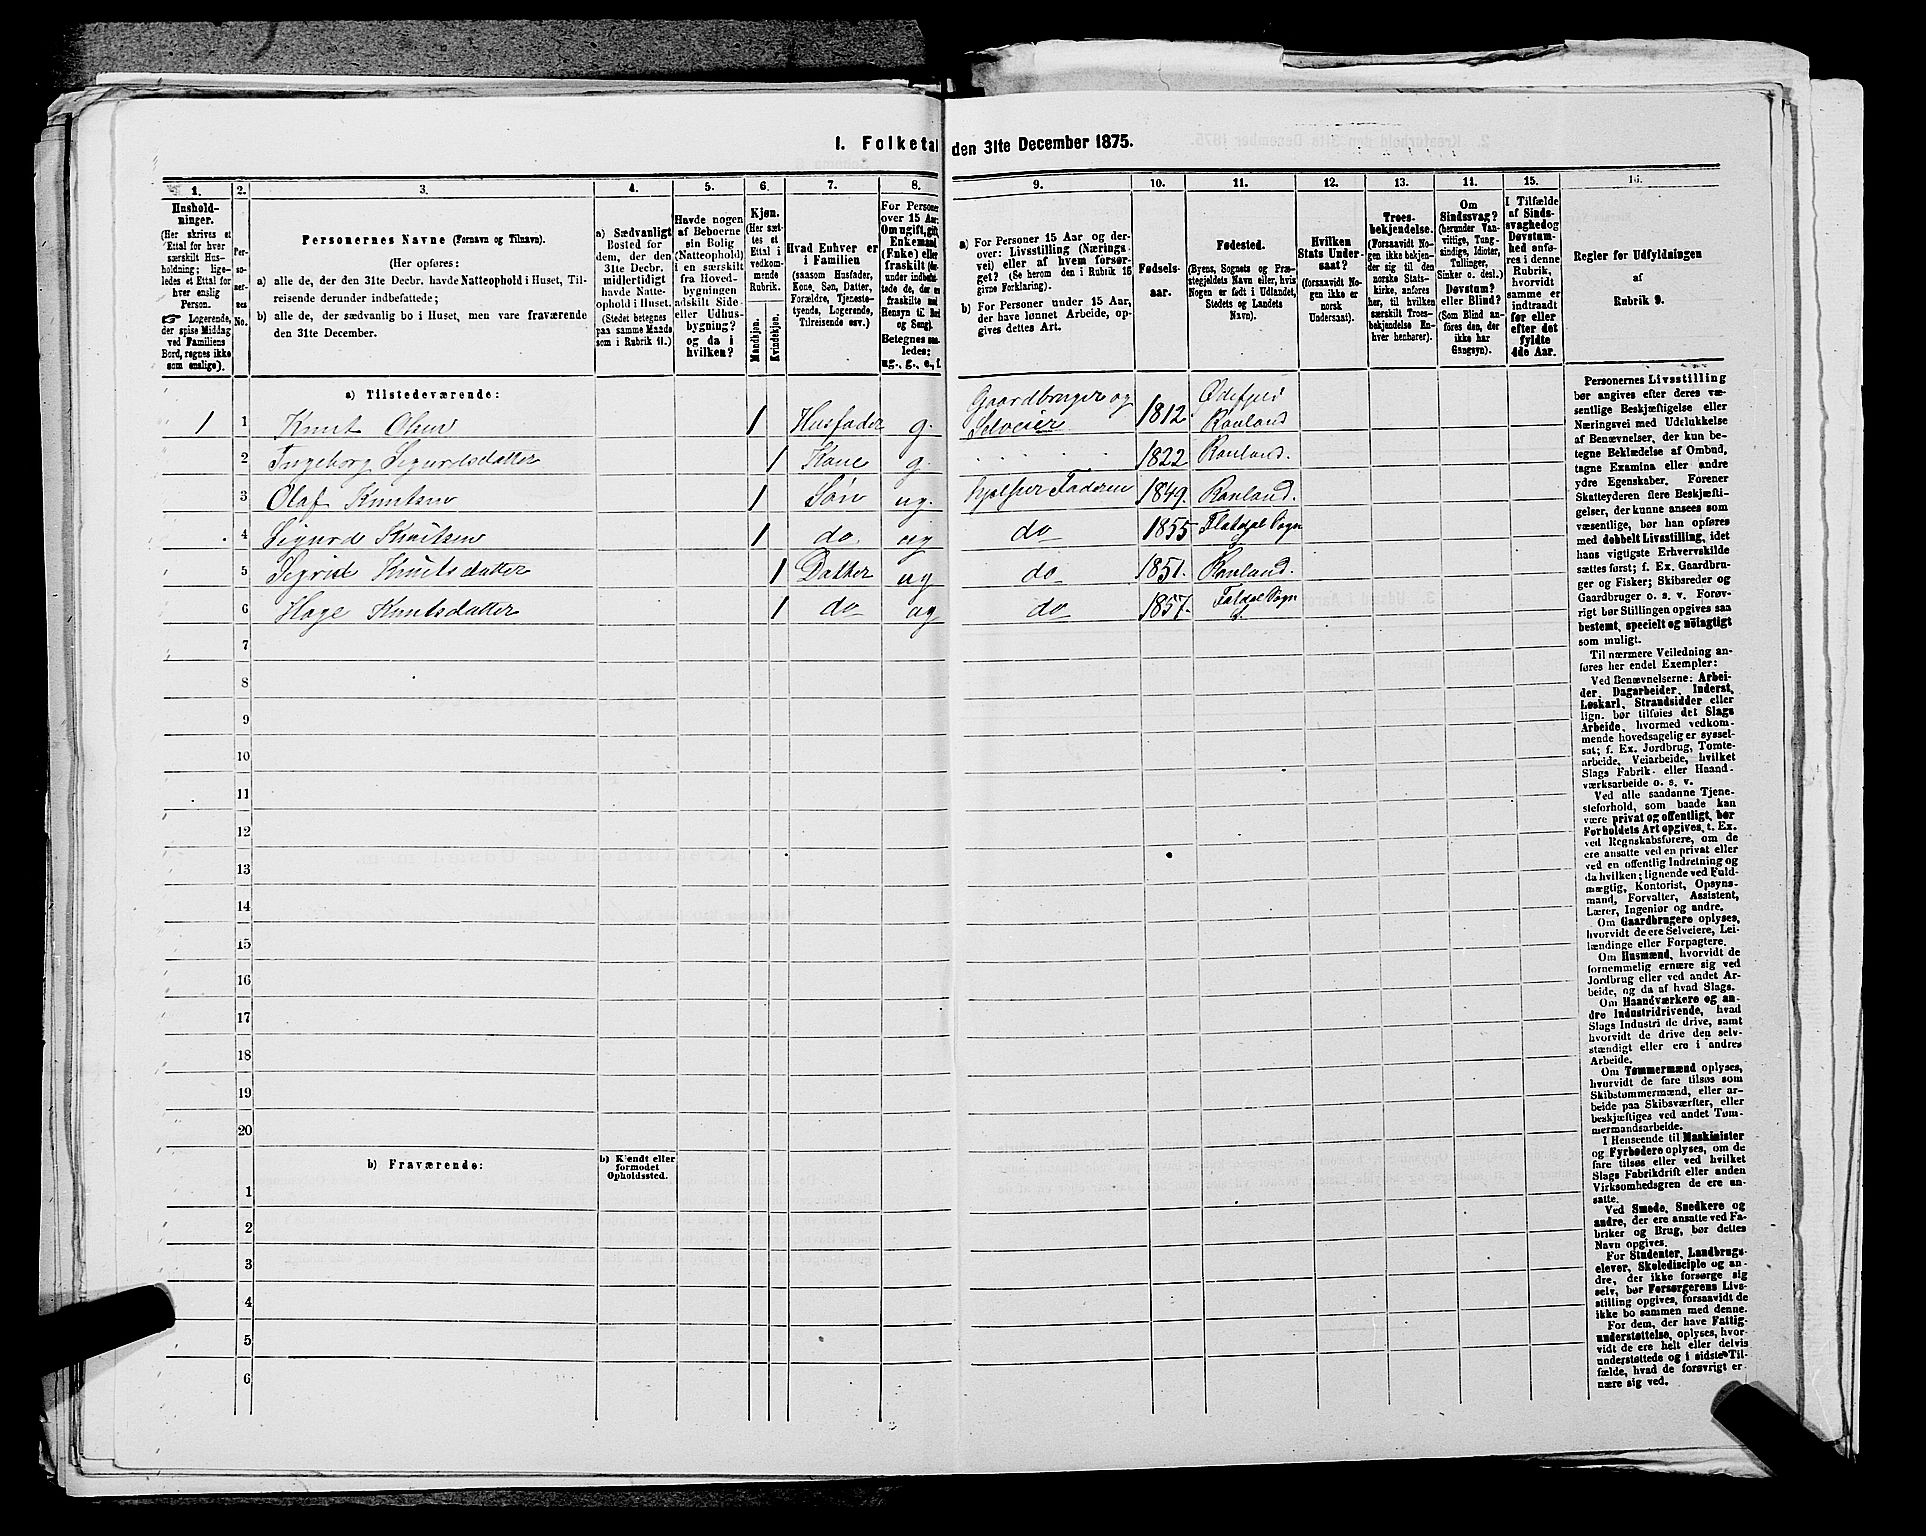 1. Folketal den 31te December 1875.
1. 2. 3. 4. 5. 6. 7. 8. 9. 10. 11. 12. 13. 14. 15. 16.
Hushold-
ninger.
(Her skrives et
Ettal for hver
særskilt Hus-
holdning; lige-
ledes et Ettal for
hver enslig
Person.
☞ Logerende,
der spise Middag
ved Familiens
Bord, regnes ikke
som enslige).
Per-
so-
ner-
nes
No.
Personernes Navne (Fornavn og Tilnavn).
(Her opføres:
a) alle de, der den 31te Decbr. havde Natteophold i Huset, Til-
reisende derunder indbefattede;
b) alle de, der sædvanlig bo i Huset, men vare fraværende
den 31te December.
a) Sædvanligt
Bosted for
dem, der den
31te Decbr.
midlertidigt
havde Natte-
ophold i Huset.
(Stedet betegnes
paa samme Maade
som i Rubrik 11.)
Havde nogen
af Beboerne
sin Bolig
(Natteophold)
i en særskilt
fra Hoved-
bygningen
adskilt Side-
eller Udhus-
bygning?
og da i
hvilken?
Kjøn.
(Her sæt-
tes et
Ettal i
vedkom-
mende
Rubrik.
Mandkjøn.
Kvindekjøn.
Hvad Enhver er
i Familien
(saasom Husfader,
Kone, Søn, Datter,
Forældre, Tjeneste-
tyende, Logerende,
Tilreisende osv.)
For Personer
over 15 Aar:
Om ugift, gift,
Enkemand
(Enke) eller
fraskilt
Betegnes saa-
ledes:
ug., g., e., f.
a) For Personer 15 Aar og der-
over: Livsstilling (Nærings-
vei) eller af hvem forsør-
get? (Se herom den i Rubrik 16
givne Forklaring).
b) For Personer under 15 Aar,
der have lønnet Arbeide, op-
gives dettes Art.
Fødsels-
aar.
Fødested.
(Byens, Sognets og Præ-
stegjeldets Navn eller, hvis
Nogen er født i Udlandet,
Stedets og Landets
Navn).
Hvilken
Stats Under-
saat?
(forsaavidt No-
gen ikke er
norsk
Undersaat).
Troes-
bekjendelse.
(Forsaavidt No-
gen ikke bekjen-
der sig til den
norske Stats-
kirke, anføres
her, til hvilken
særskilt Troes-
bekjendelse En-
hver henhører).
Om
Sindssvag?
(herunder Van-
vittige, Tung-
sindige, Idioter,
Tullinger,
Sinker o. desl.)
Døvstum?
eller Blind?
(Som Blind an-
føres den, der
ikke har
Gangsyn).
I Tilfælde
af Sinds-
svaghed og
Døvstum-
hed anfø-
res i denne
Rubrik,
hvorvidt
samme er
indtraadt
før eller
efter det
fyldte
4de Aar.
Regler for Udfyldningen
af
Rubrik 9.
a) Tilstedeværende:
1 1 Knut Olsen 1 Husfader g. Gaardbruger og Selveier 1812. Rauland
2 Ingeborg Sigurdsdatter 1 Kone g. 1822 Rauland.
3 Olaf Knutsen 1 Søn ug. hjælper Faderen 1849. Rauland.
4 Sigurd Knutsen 1 do. ug do 1855 Flatdal Sogn
5 Sigrid Knutsdatter 1 Datter ug do 1851. Rauland.
6 Hæge Knutsdatter 1 do ug do 1857. Sogn
7
8
9
10
11
12
13
14
15
16
17
18
19
20
b) Fraværende:
b) Kjendt eller
formodet
Opholdssted.
1
2
3
4
5
6
Personernes Livsstilling
bør angives efter deres væ-
sentlige Beskjæftigelse eller
Næringsvei med Udelukkelse
af Benævnelser, der kun be-
tegne Beklædelse af Ombud,
tagne Examina eller andre
ydre Egenskaber. Forener
Skatteyderen flere Beskjæfti-
gelser, der kunne ansees som
væsentlige, bør han opføres
med dobbelt Livsstilling, idet
hans vigtigste Erhvervskilde
sættes først; f. Ex. Gaardbru-
ger og Fisker; Skibsreder og
Gaardbruger o. s. v. Forøv-
rigt bør Stillingen opgives saa
bestemt, specielt og nøiagtigt
som muligt.
Til nærmere Veiledning an-
føres her endel Exempler:
Ved Benævnelserne: Arbei-
der, Dagarbeider, Inderst,
Løskarl, Strandsidder eller
lign. bør tilføies det Slags
Arbeide, hvormed vedkom-
mende hovedsagelig er syssel-
sat; f. Ex. Jordbrug, Tomte-
arbeide, Veiarbeide, hvilket
Slags Fabrik- eller Haand-
værksarbeide o. s. v.
Ved alle saadanne Tjene-
steforhold, som baade kan
være privat og offentligt, bør
Forholdets Art opgives, t. Ex.
ved Regnskabsførere, om de
ere ansatte ved en privat eller
ved en offentlig Indretning og
da hvilken; lignende ved Fuld-
mægtig, Kontorist, Opsyns-
mand, Forvalter, Assistent,
Lærer, Ingeniør og andre.
Om Gaardbrugere oplyses,
hvorvidt de ere Selveiere, Lei-
lændinge eller Forpagtere.
Om Husmænd, hvorvidt de
fornemmelig ernære sig ved
Jordbrug eller ved andet Ar-
beide, og da af hvad Slags.
Om Haandværkere og an-
dre Industridrivende, hvad
Slags Industri de drive, samt
hvorvidt de drive den selv-
stændigt eller ere i andres
Arbeide.
Om Tømmermænd oplyses,
hvorvidt de fare tilsøs som
Skibstømmermænd, eller ar-
beide paa Skibsværfter, eller
beskjæftiges ved andet Tøm-
mermandsarbeide.
I Henseende til Maskinister
og Fyrbødere oplyses, om de
fare tilsøs eller ved hvilket
Slags Fabrikdrift eller anden
Virksomhedsgren de ere an-
satte.
Ved Smede, Snedkere og
andre, der ere ansatte ved Fa-
briker og Brug, bør dettes
Navn opgives.
For Studenter, Landbrugs-
elever, Skoledisciple og an-
dre, der ikke forsørge sig
selv, bør Forsørgerens Livs-
stilling opgives, forsaavidt de
ikke bo sammen med denne.
For dem, der have Fattig-
understøttelse, oplyses, hvor-
vidt de ere helt eller delvis
understøttede og i sidste Til-
fælde, hvad de forøvrigt er-
nære sig ved.